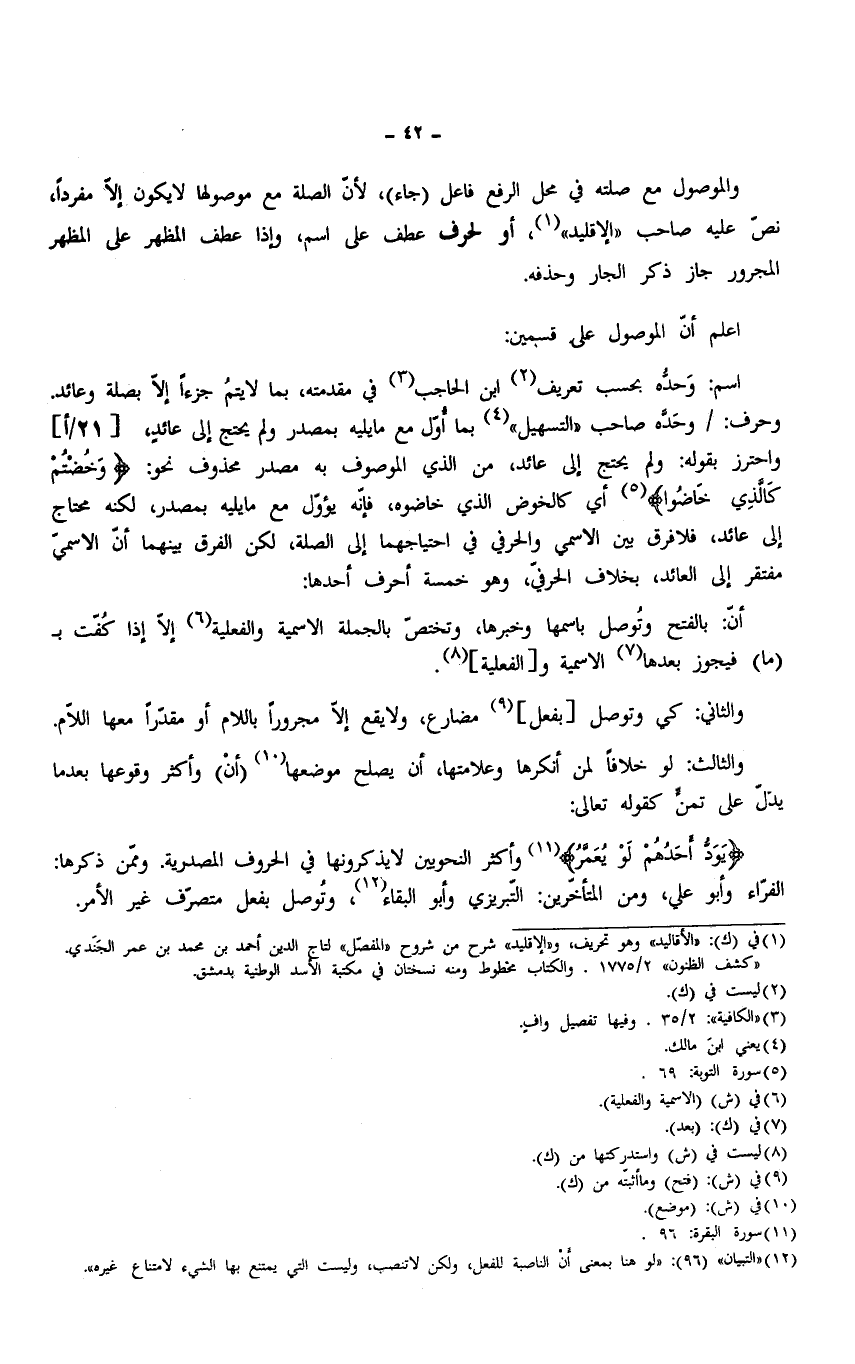 - ٤٢ -
والموصول مع صلته في محل الرفع فاعل (جاء)، لأنّ الصلة مع موصولها لايكون إلاّ مفرداً،
نصّ عليه صاحب «الإقليد»(١)، أو لحرف عطف على اسم، وإذا عطف المظهر على المظهر
المجرور جاز ذكر الجار وحذفه.
اعلم أنّ الموصول على قسمين:
اسم: وَحدُّه بحسب تعريف(٢) ابن الحاجب(٣) في مقدمته، بما لايتمُ جزءاً إلاّ بصلة وعائد.
وحرف: / وحَدَّه صاحب «التسهيل»(٤) بما أُوّل مع مايليه بمصدر ولم يحتج إلى عائدٍ، [٢١/أ]
واحترز بقوله: ولم يحتج إلى عائد، من الذي الموصوف به مصدر محذوف نحو: ﴿وَخُضْتُمْ
كَالَّذِي خَاضُوا﴾(٥) أي كالخوض الذي خاضوه، فإنّه يؤوّل مع مايليه بمصدر، لكنه محتاج
إلى عائد، فلافرق بين الاسمي والحرفي في احتياجهما إلى الصلة، لكن الفرق بينهما أنّ الاسميّ
مفتقر إلى العائد، بخلاف الحرفيّ، وهو خمسة أحرف أحدها:
أنّ: بالفتح وتُوصل باسمها وخبرها، وتختصّ بالجملة الاسمية والفعلية(٦) إلاّ إذا كُفّت بـ
(ما) فيجوز بعدها(٧) الاسمية و[الفعلية](٨).
والثاني: كي وتوصل [بفعل](٩) مضارع، ولايقع إلاّ مجروراً باللام أو مقدّراً معها اللاّم.
والثالث: لو خلافاً لمن أنكرها وعلامتها، أن يصلح موضعها(١٠) (أنْ) وأكثر وقوعها بعدما
يدّلّ على تمنٍّ كقوله تعالى:
﴿يَوَدُّ أَحَدُهُمْ لَوْ يُعَمَّرُ﴾(١١) وأكثر النحويين لايذكرونها في الحروف المصدرية. وممّن ذكرها:
الفرّاء وأبو علي، ومن المتأخّرين: التّبريزي وأبو البقاء(١٢)، وتُوصل بفعل متصرّف غير الأمر.
(١) في (ك): «الأقاليد» وهو تحريف، و«الإقليد» شرح من شروح «المفصّل» لتاج الدين أحمد بن محمد بن عمر الجَندي.
«كشف الظنون» ١٧٧٥/٢ . والكتاب مخطوط ومنه نسختان في مكتبة الأسد الوطنية بدمشق.
(٢) ليست في (ك).
(٣) «الكافية»: ٣٥/٢ . وفيها تفصيل وافٍ.
(٤) يعني ابنَ مالك.
(٥) سورة التوبة: ٦٩ .
(٦) في (ش) (الاسمية والفعلية).
(٧) في (ك): (بعد).
(٨) ليست في (ش) واستدركتها من (ك).
(٩) في (ش): (فتح) وماأثبتّه من (ك).
(١٠) في (ش): (موضع).
(١١) سورة البقرة: ٩٦ .
(١٢) «التبيان» (٩٦): «لو هنا بمعنى أَنْ الناصبة للفعل، ولكن لاتنصب، وليست التي يمتنع بها الشيء لامتناع غيره».